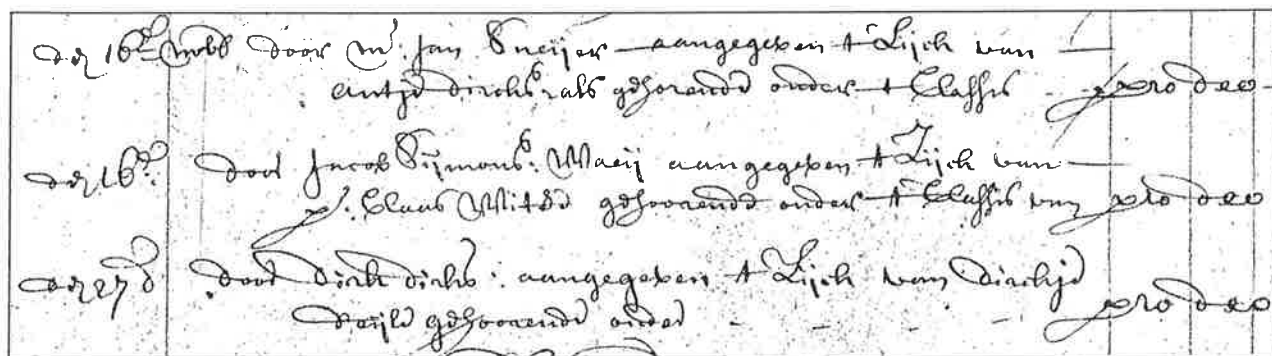 den 16e novb door mr: Jan Sneijer aangegeven t Lijck van
antje dircks: als gehorende onder t Classis pro deo
den 16e: door Jacob Sijmons: Waeij aangegeven t Lijck van
p: Claas Witte gehoorende onder t Classis van pro deo
den 27e door dirk dirks: aangegeven t Lijck van dirckje
gehoorende onder pro deo